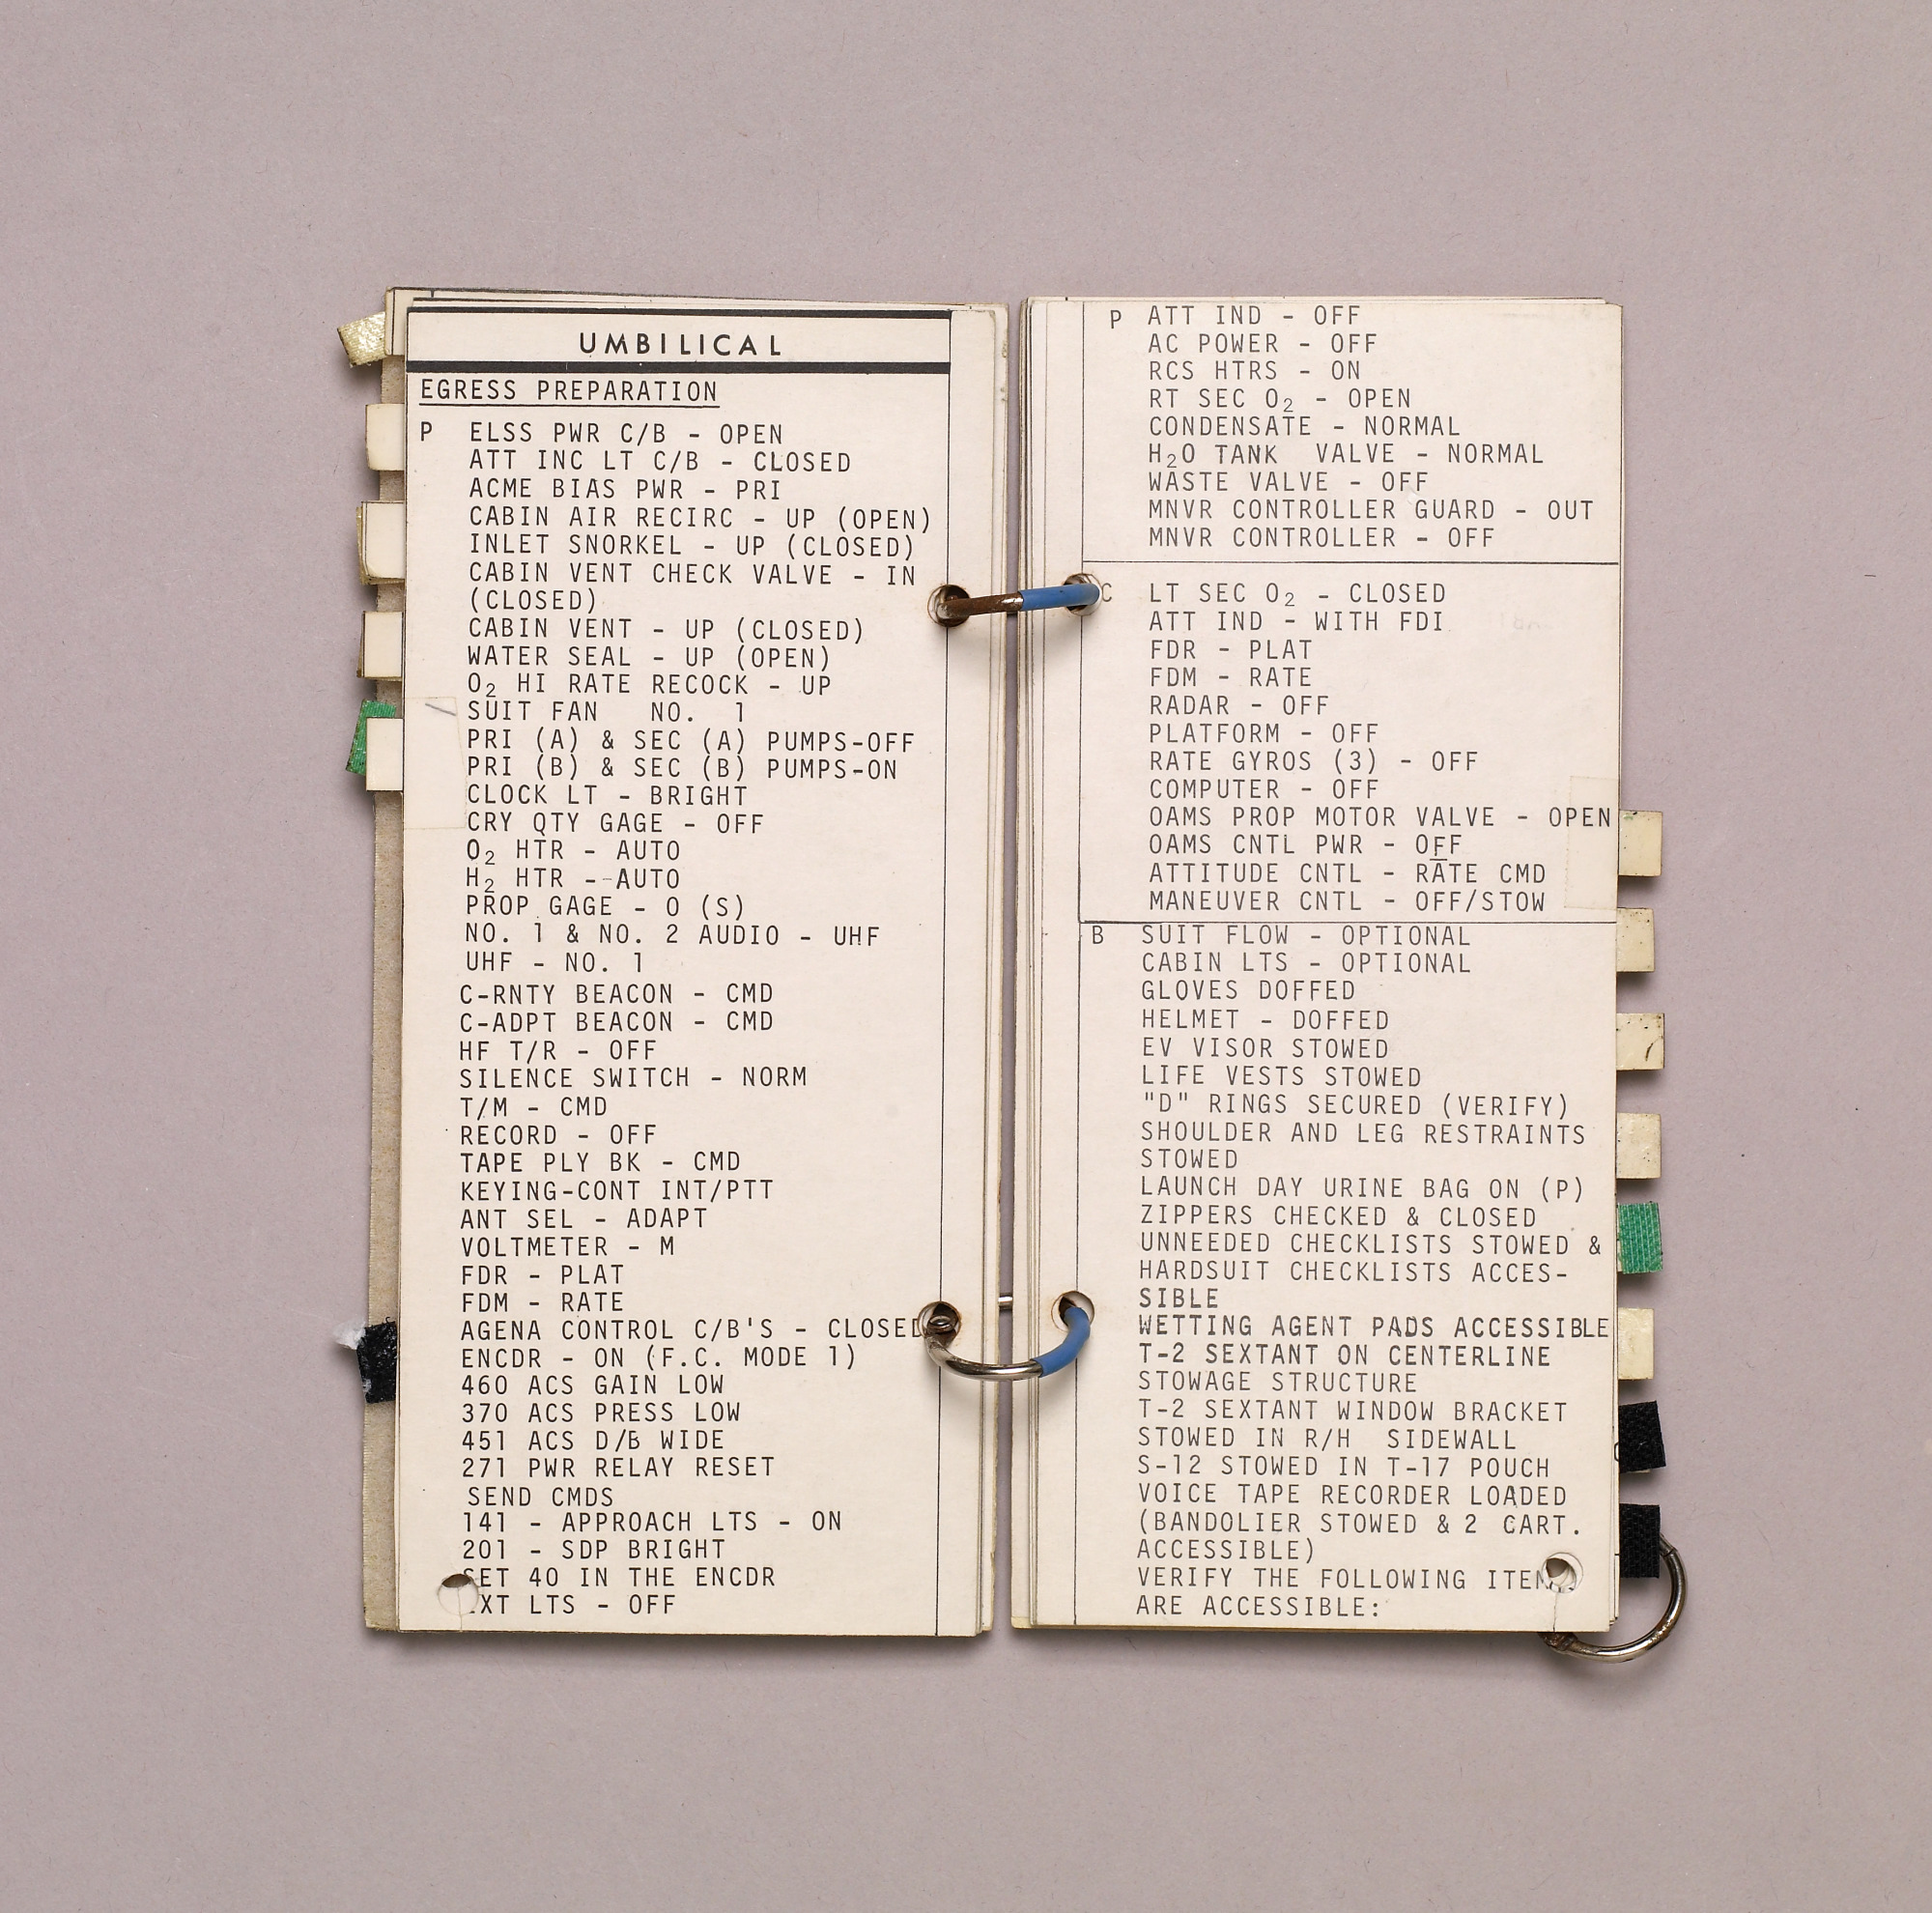 UMBILICAL
EGRESS PREPARATION
P ELSS PWR C/B - OPEN
ATT INC LT C/B - CLOSED
ACME BIAS PWR - PRI
CABIN AIR RECIRC - UP (OPEN)
INLET SNORKEL - UP (CLOSED)
CABIN VENT CHECK VALVE - IN
(CLOSED)
CABIN VENT - UP (CLOSED)
WATER SEAL - UP (OPEN)
O₂ HI RATE RECOCK - UP
SUIT FAN NO. 1
PRI (A) & SEC (A) PUMPS-OFF
PRI (B) & SEC (B) PUMPS-ON
CLOCK LT - BRIGHT
CRY QTY GAGE - OFF
O₂ HTR - AUTO
H₂ HTR - AUTO
PROP GAGE - 0 (S)
NO. 1 & NO. 2 AUDIO - UHF
UHF - NO. 1
C-RNTY BEACON - CMD
C-ADPT BEACON - CMD
HF T/R - OFF
SILENCE SWITCH - NORM
T/M - CMD
RECORD - OFF
TAPE PLY BK - CMD
KEYING-CONT INT/PTT
ANT SEL - ADAPT
VOLTMETER - M
FDR - PLAT
FDM - RATE
AGENA CONTROL C/B'S - CLOSED
ENCDR - ON (F.C. MODE 1)
460 ACS GAIN LOW
370 ACS PRESS LOW
451 ACS D/B WIDE
271 PWR RELAY RESET
SEND CMDS
141 - APPROACH LTS - ON
201 - SDP BRIGHT
SET 40 IN THE ENCDR
EXT LTS - OFF
P ATT IND - OFF
AC POWER - OFF
RCS HTRS - ON
RT SEC O₂ - OPEN
CONDENSATE - NORMAL
H₂O TANK VALVE - NORMAL
WASTE VALVE - OFF
MNVR CONTROLLER GUARD - OUT
MNVR CONTROLLER - OFF
C LT SEC O₂ - CLOSED
ATT IND - WITH FDI
FDR - PLAT
FDM - RATE
RADAR - OFF
PLATFORM - OFF
RATE GYROS (3) - OFF
COMPUTER - OFF
OAMS PROP MOTOR VALVE - OPEN
OAMS CNTL PWR - OFF
ATTITUDE CNTL - RATE CMD
MANEUVER CNTL - OFF/STOW
B SUIT FLOW - OPTIONAL
CABIN LTS - OPTIONAL
GLOVES DOFFED
HELMET - DOFFED
EV VISOR STOWED
LIFE VESTS STOWED
"D" RINGS SECURED (VERIFY)
SHOULDER AND LEG RESTRAINTS
STOWED
LAUNCH DAY URINE BAG ON (P)
ZIPPERS CHECKED & CLOSED
UNNEEDED CHECKLISTS STOWED &
HARDSUIT CHECKLISTS ACCES-
SIBLE
WETTING AGENT PADS ACCESSIBLE
T-2 SEXTANT ON CENTERLINE
STOWAGE STRUCTURE
T-2 SEXTANT WINDOW BRACKET
STOWED IN R/H SIDEWALL
S-12 STOWED IN T-17 POUCH
VOICE TAPE RECORDER LOADED
(BANDOLIER STOWED & 2 CART.
ACCESSIBLE)
VERIFY THE FOLLOWING ITEMS
ARE ACCESSIBLE: